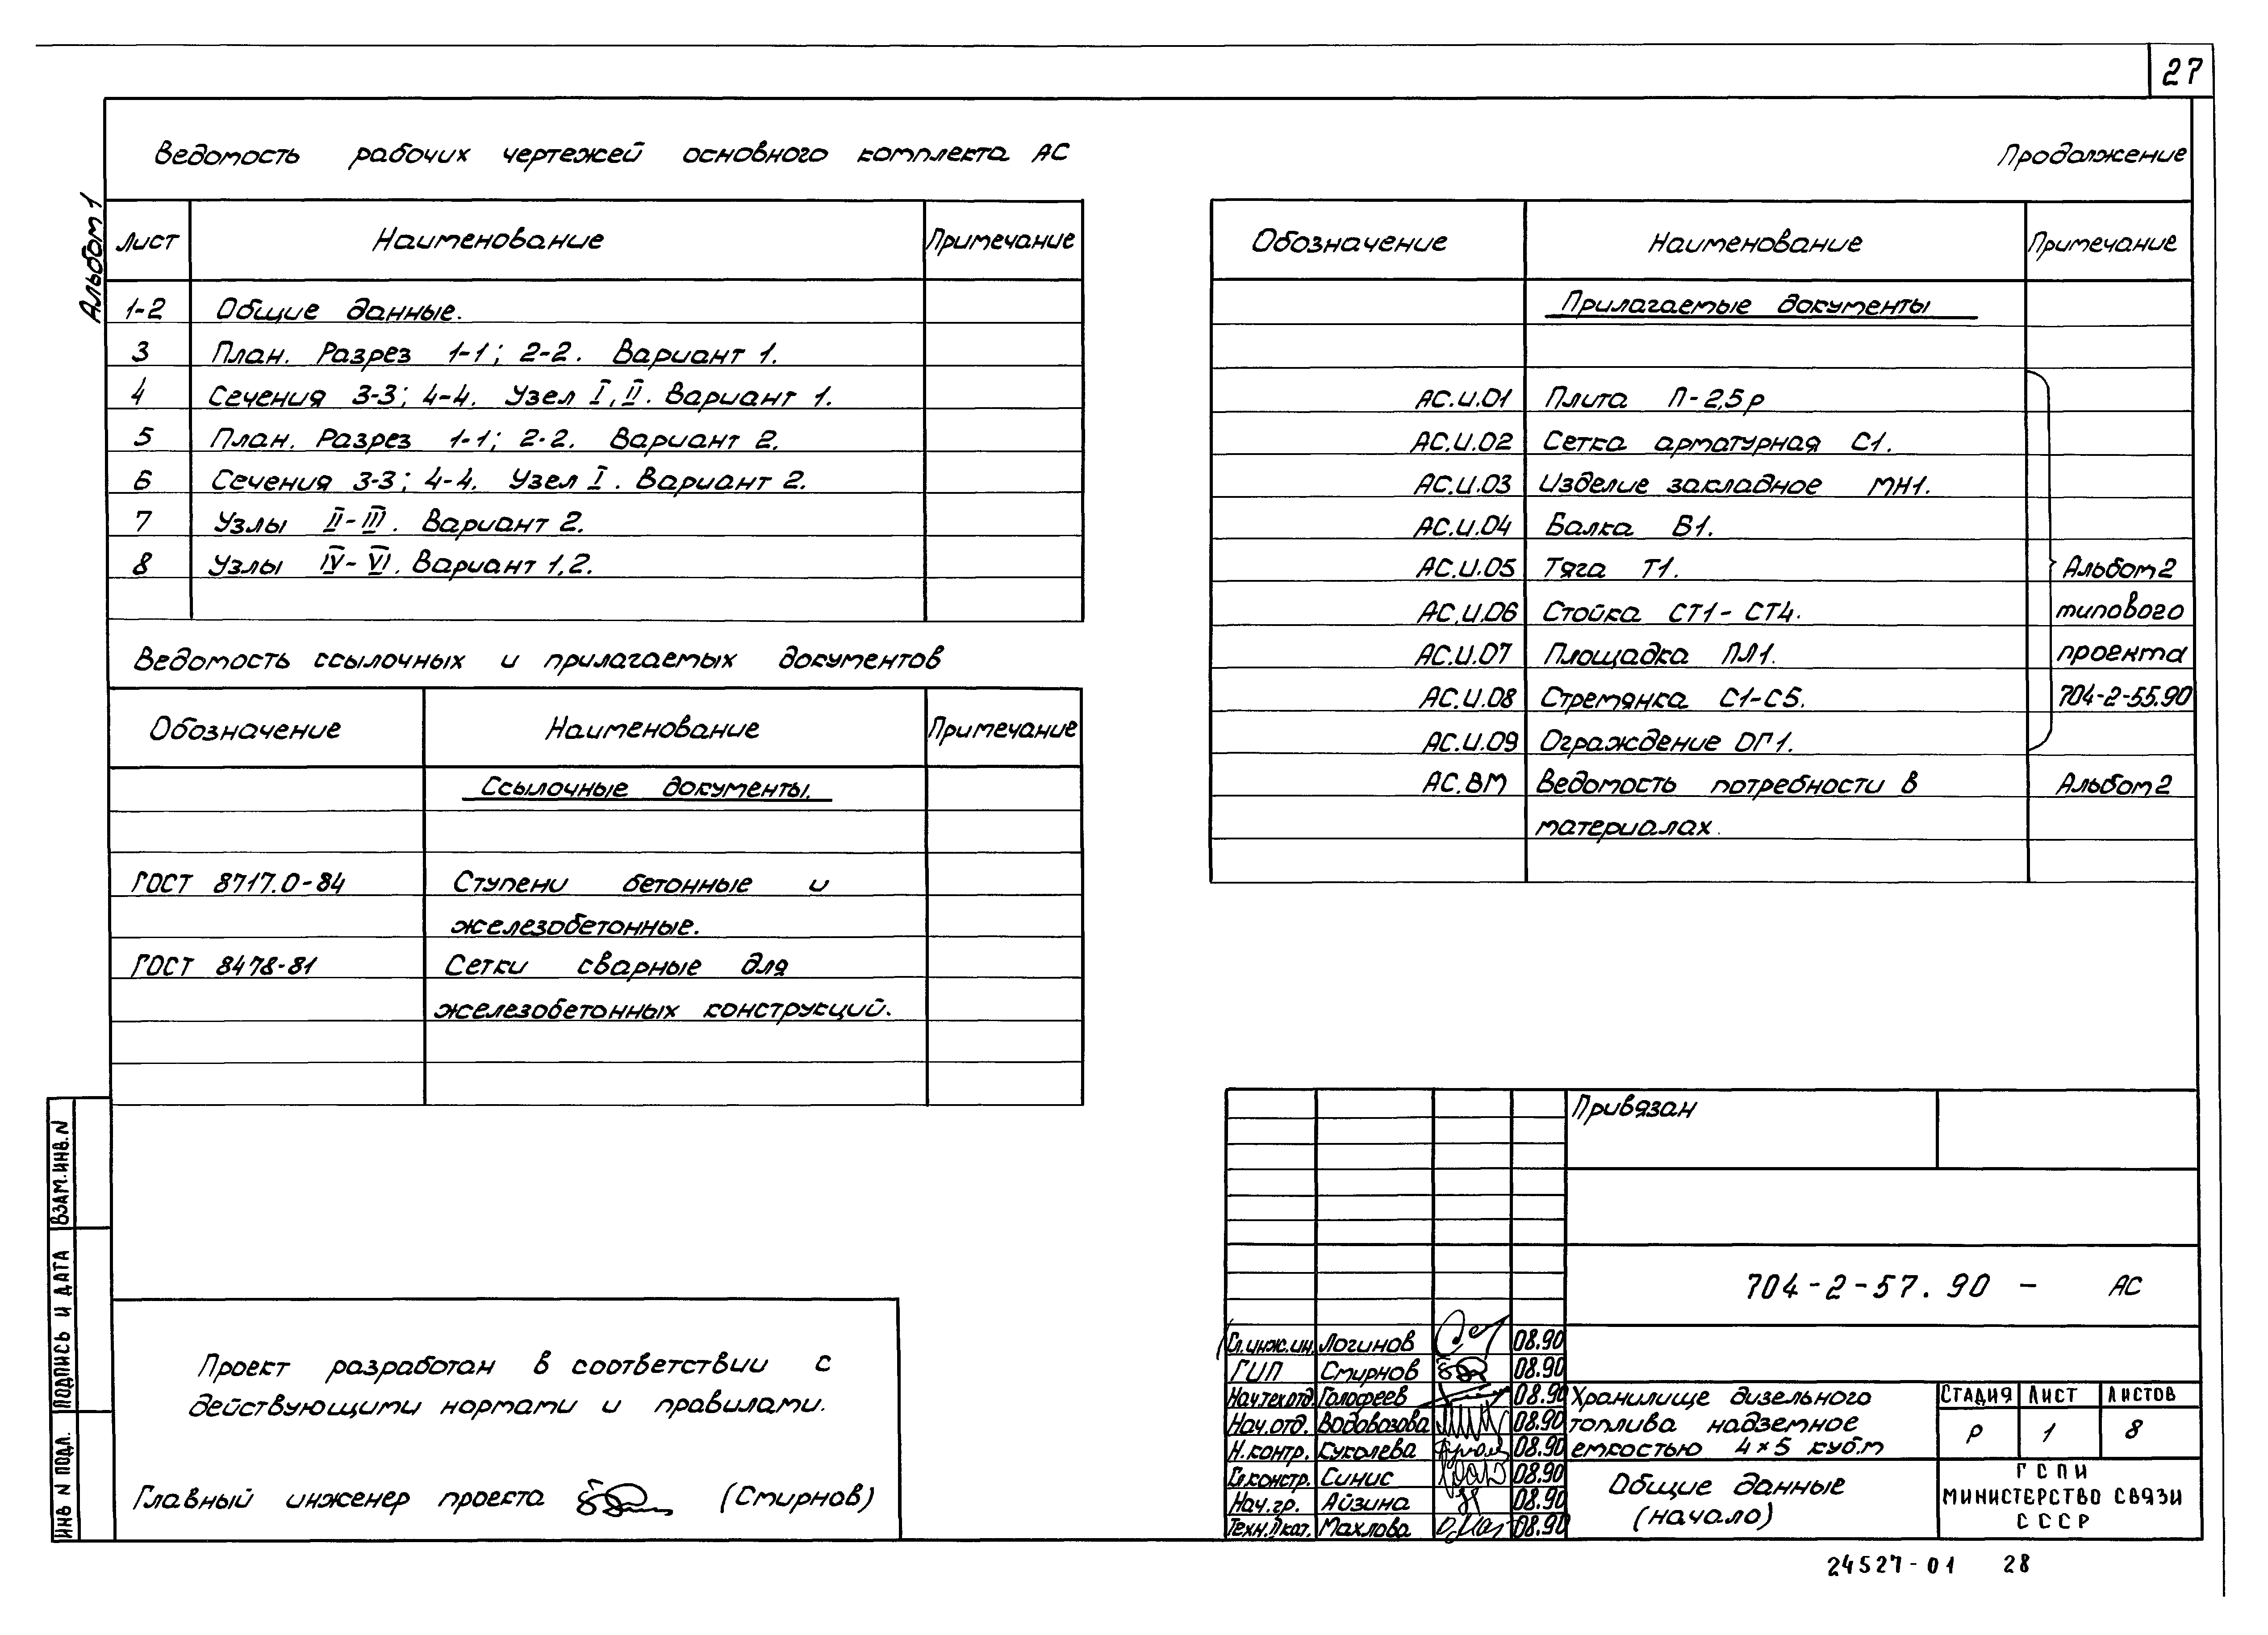 27
Альбом 1
Ведомость рабочих чертежей основного комплекта АС
Лист Наименование Примечание
1-2 Общие данные.
3 План. Разрез 1-1; 2-2. Вариант 1.
4 Сечения 3-3; 4-4. Узел I, II. Вариант 1.
5 План. Разрез 1-1; 2-2. Вариант 2.
6 Сечения 3-3; 4-4. Узел I. Вариант 2.
7 Узлы II-III. Вариант 2.
8 Узлы IV-VI. Вариант 1,2.
Ведомость ссылочных и прилагаемых документов
Обозначение Наименование Примечание
Ссылочные документы.
ГОСТ 8717.0-84 Ступени бетонные и
железобетонные.
ГОСТ 8478-81 Сетки сварные для
железобетонных конструкций.
Продолжение
Обозначение Наименование Примечание
Прилагаемые документы
АС.И.01 Плита П-2,5р
АС.И.02 Сетка арматурная С1.
АС.И.03 Изделие закладное МН1.
АС.И.04 Балка Б1.
АС.И.05 Тяга Т1. Альбом 2
АС.И.06 Стойка СТ1-СТ4. типового
АС.И.07 Площадка ПЛ1. проекта
АС.И.08 Стремянка С1-С5. 704-2-55.90
АС.И.09 Ограждение ОГ1.
АС.ВМ Ведомость потребности в Альбом 2
материалах.
ВЗАМ.ИНВ.N
ПОДПИСЬ И ДАТА
ИНВ N ПОДЛ.
Проект разработан в соответствии с
действующими нормами и правилами.
Главный инженер проекта (Смирнов)
Привязан
704-2-57.90 - АС
Гл.инж.ин. Логинов 08.90
ГИП Смирнов 08.90
Нач.тех.отд. Голофеев 08.90
Нач.отд. Водовозова 08.90
Н.контр. Суколева 08.90
Гл.констр. Синис 08.90
Нач.гр. Айзина 08.90
Техн.II кат. Махлова 08.90
Хранилище дизельного
топлива надземное
емкостью 4×5 куб.м
СТАДИЯ ЛИСТ ЛИСТОВ
Р 1 8
Общие данные
(начало)
ГСПИ
МИНИСТЕРСТВО СВЯЗИ
СССР
24527-01 28